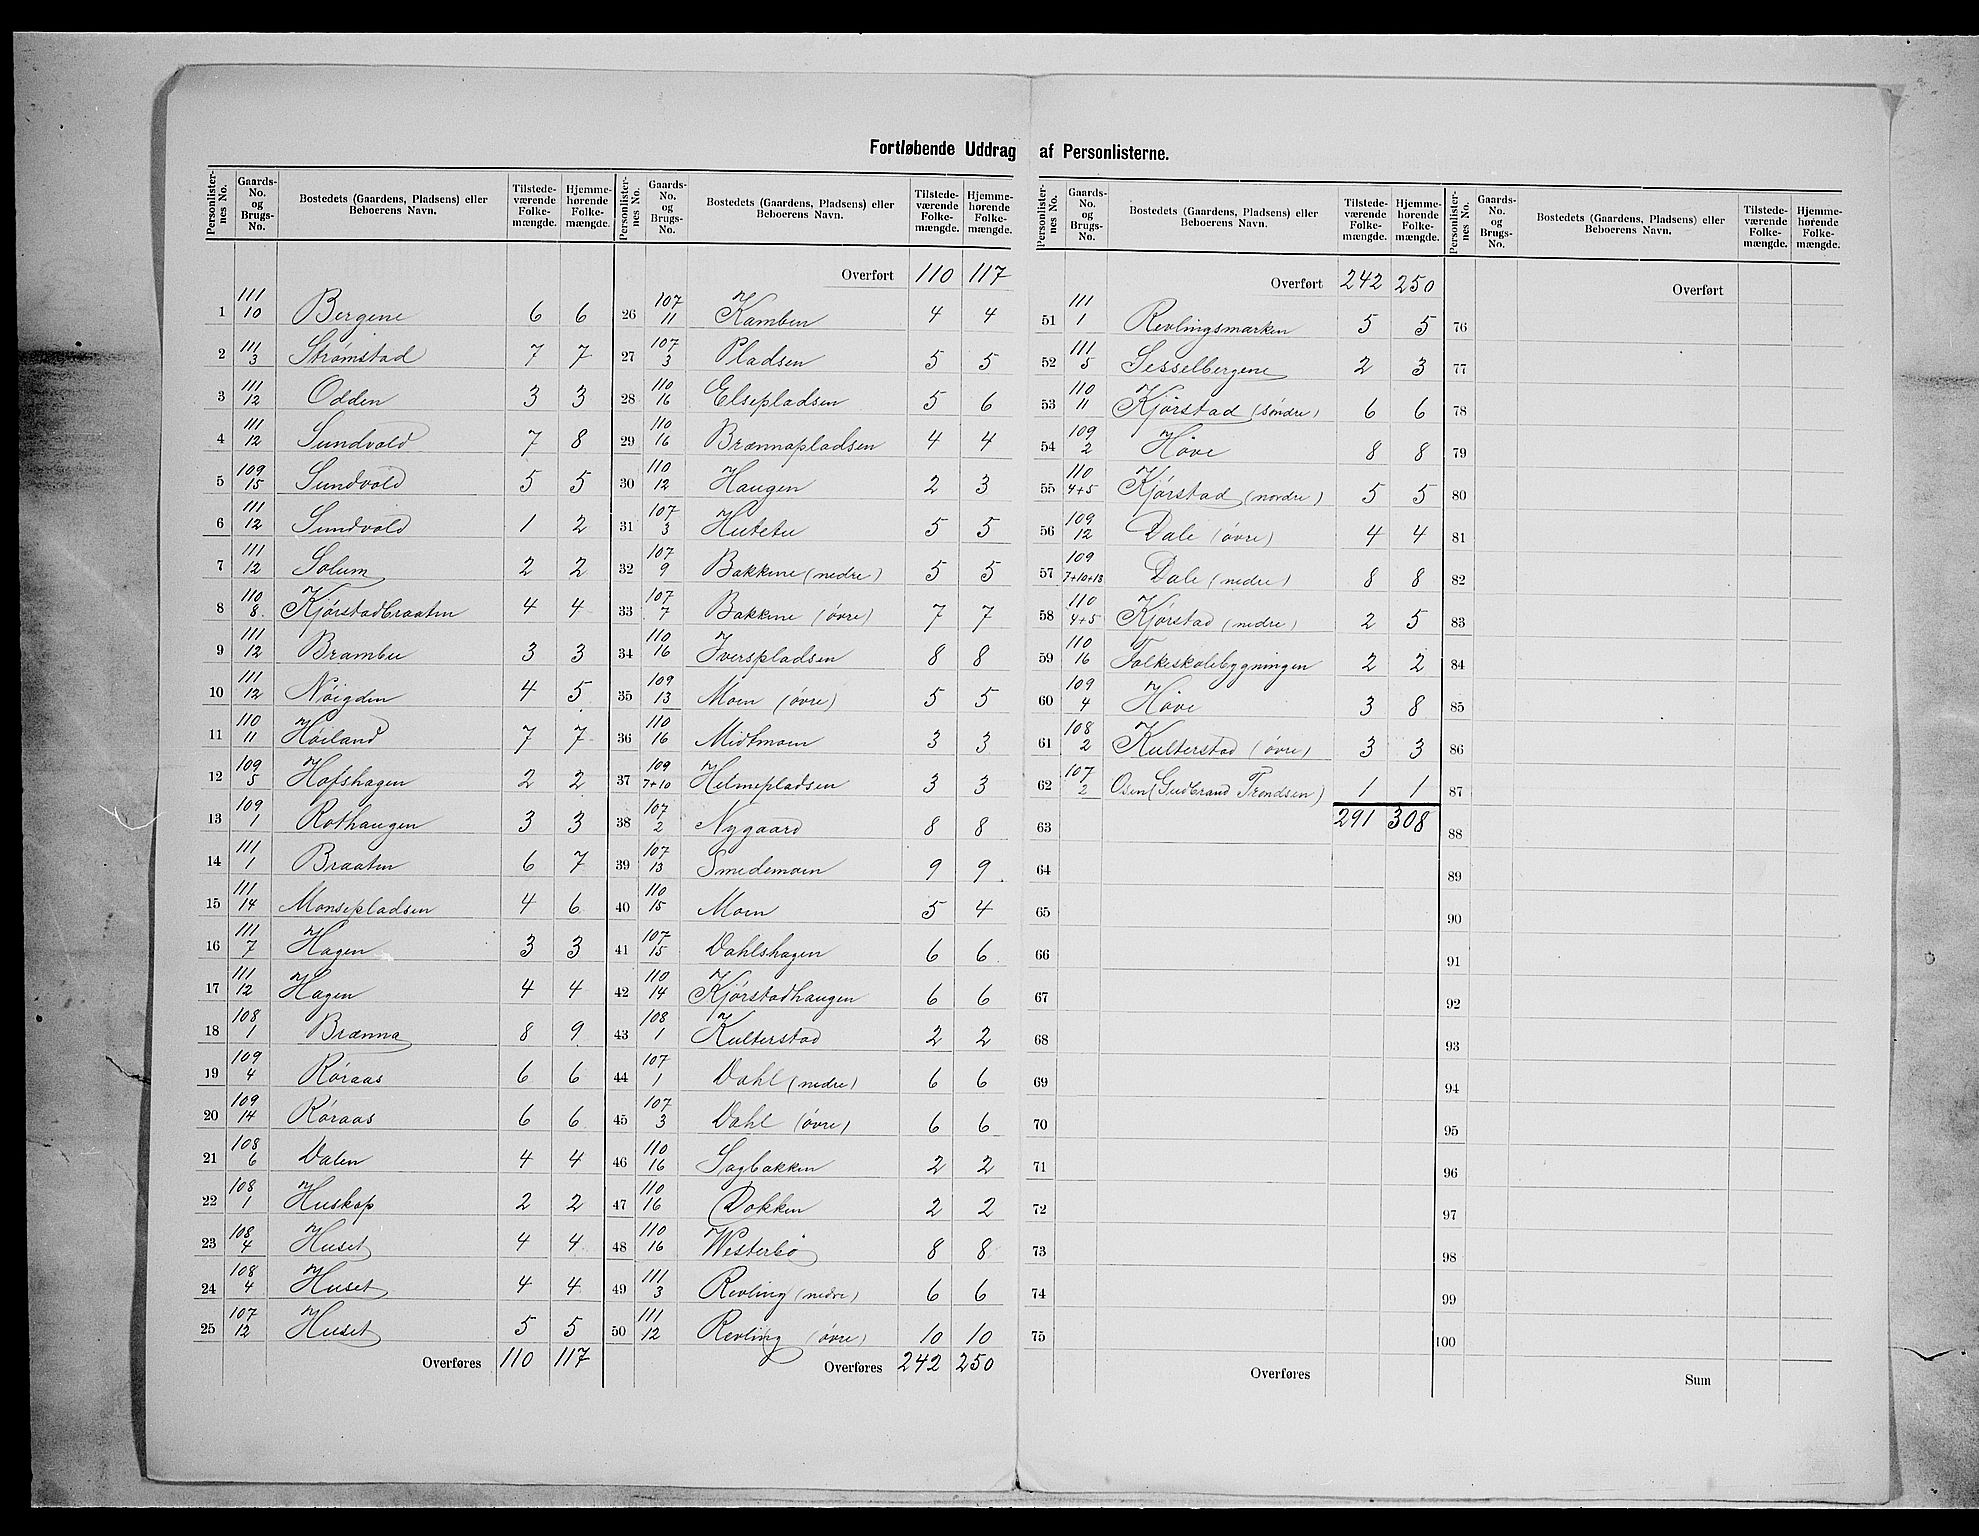 Fortløbende Uddrag af Personlisterne.
Personlister-nes No. | Gaards-No. og Brugs-No. | Bostedets (Gaardens, Pladsens) eller Beboerens Navn. | Tilstede-værende Folke-mængde. | Hjemme-hørende Folke-mængde.
1 111/10 Bergene 6 6
2 111/3 Strømstad 7 7
3 111/12 Odden 3 3
4 111/12 Sundvold 7 8
5 109/15 Sundvold 5 5
6 111/12 Sundvold 1 2
7 111/12 Solum 2 2
8 110/8 Kjørstadbraaten 4 4
9 111/12 Brambu 3 3
10 111/12 Nöigden 4 5
11 110/11 Høiland 7 7
12 109/5 Hofshagen 2 2
13 109/1 Rothaugen 3 3
14 111/1 Braaten 6 7
15 111/14 Monsepladsen 4 6
16 111/7 Hagen 3 3
17 111/12 Hagen 4 4
18 108/1 Brænna 8 9
19 109/4 Røraas 6 6
20 109/14 Røraas 6 6
21 108/6 Dalen 4 4
22 108/1 Huskop 2 2
23 108/4 Huset 4 4
24 108/4 Huset 4 4
25 107/12 Huset 5 5
Overføres 110 117
Personlister-nes No. | Gaards-No. og Brugs-No. | Bostedets (Gaardens, Pladsens) eller Beboerens Navn. | Tilstede-værende Folke-mængde. | Hjemme-hørende Folke-mængde.
Overført 110 117
26 107/11 Kamben 4 4
27 107/3 Pladsen 5 5
28 110/16 Elsepladsen 5 6
29 110/16 Brænnapladsen 4 4
30 110/12 Haugen 2 3
31 107/3 Hutetu 5 5
32 107/9 Bakkene (nedre) 5 5
33 107/7 Bakkene (øvre) 7 7
34 110/16 Iverspladsen 8 8
35 109/13 Moen (øvre) 5 5
36 110/16 Midtmoen 3 3
37 109/7+10 Helmepladsen 3 3
38 107/2 Nygaard 8 8
39 107/13 Smedemoen 9 9
40 110/15 Moen 5 4
41 107/15 Dahlshagen 6 6
42 110/14 Kjørstadhaugen 6 6
43 108/1 Kulterstad 2 2
44 107/1 Dahl (nedre) 6 6
45 107/3 Dahl (øvre) 6 6
46 110/16 Sagbakken 2 2
47 110/16 Dokken 2 2
48 110/16 Westerbø 8 8
49 111/3 Revling (nedre) 6 6
50 111/12 Revling (øvre) 10 10
Overføres 242 250
Personlister-nes No. | Gaards-No. og Brugs-No. | Bostedets (Gaardens, Pladsens) eller Beboerens Navn. | Tilstede-værende Folke-mængde. | Hjemme-hørende Folke-mængde.
Overført 242 250
51 111/1 Revlingsmarken 5 5
52 111/5 Sesselbergene 2 3
53 110/11 Kjørstad (søndre) 6 6
54 109/2 Høve 8 8
55 110/4+5 Kjørstad (nordre) 5 5
56 109/12 Dale (øvre) 4 4
57 109/7+10+18 Dale (nedre) 8 8
58 110/4+5 Kjørstad (nedre) 2 5
59 110/16 Folkeskolebygningen 2 2
60 109/4 Høve 3 8
61 108/2 Kulterstad (øvre) 3 3
62 107/2 Osen (Gudbrand Trondsen) 1 1
63 291 308
64
65
66
67
68
69
70
71
72
73
74
75
Overføres
Personlister-nes No. | Gaards-No. og Brugs-No. | Bostedets (Gaardens, Pladsens) eller Beboerens Navn. | Tilstede-værende Folke-mængde. | Hjemme-hørende Folke-mængde.
Overført
76
77
78
79
80
81
82
83
84
85
86
87
88
89
90
91
92
93
94
95
96
97
98
99
100
Sum